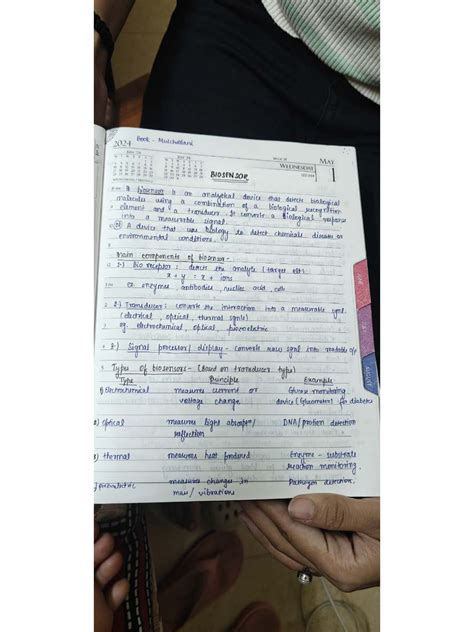 Book - Mulchandani
2024
MAY
WEDNESDAY
1
BIOSENSOR
A biosensor is an analytical device that detects biological
molecules using a combination of a biological recognition
element and a transducer. It converts a biological response
into a measurable signal.
A device that uses biology to detect chemicals diseases or
environmental conditions.
Main components of biosensor-
1) Bio receptor: detects the analyte (target
x + y = x + ions
enzymes, antibodies, nucleic acid, cells
2) Transducer: converts the interaction into a measurable
(electrical, optical, thermal
eg. electrochemical, optical, piezoelectric
3) Signal processor/ display - converts into readable o/p
Types of biosensors- (Based on transducer type)
Type Principle Example
1) electrochemical measures current or Glucose monitoring
voltage change device (Glucometer) for diabetes
2) Optical measures light / DNA/protein detection
reflection
3) thermal measures heat produced Enzyme - substrate
reaction monitoring.
measures changes in Pathogen detection.
mass/ vibrations
AUGUST